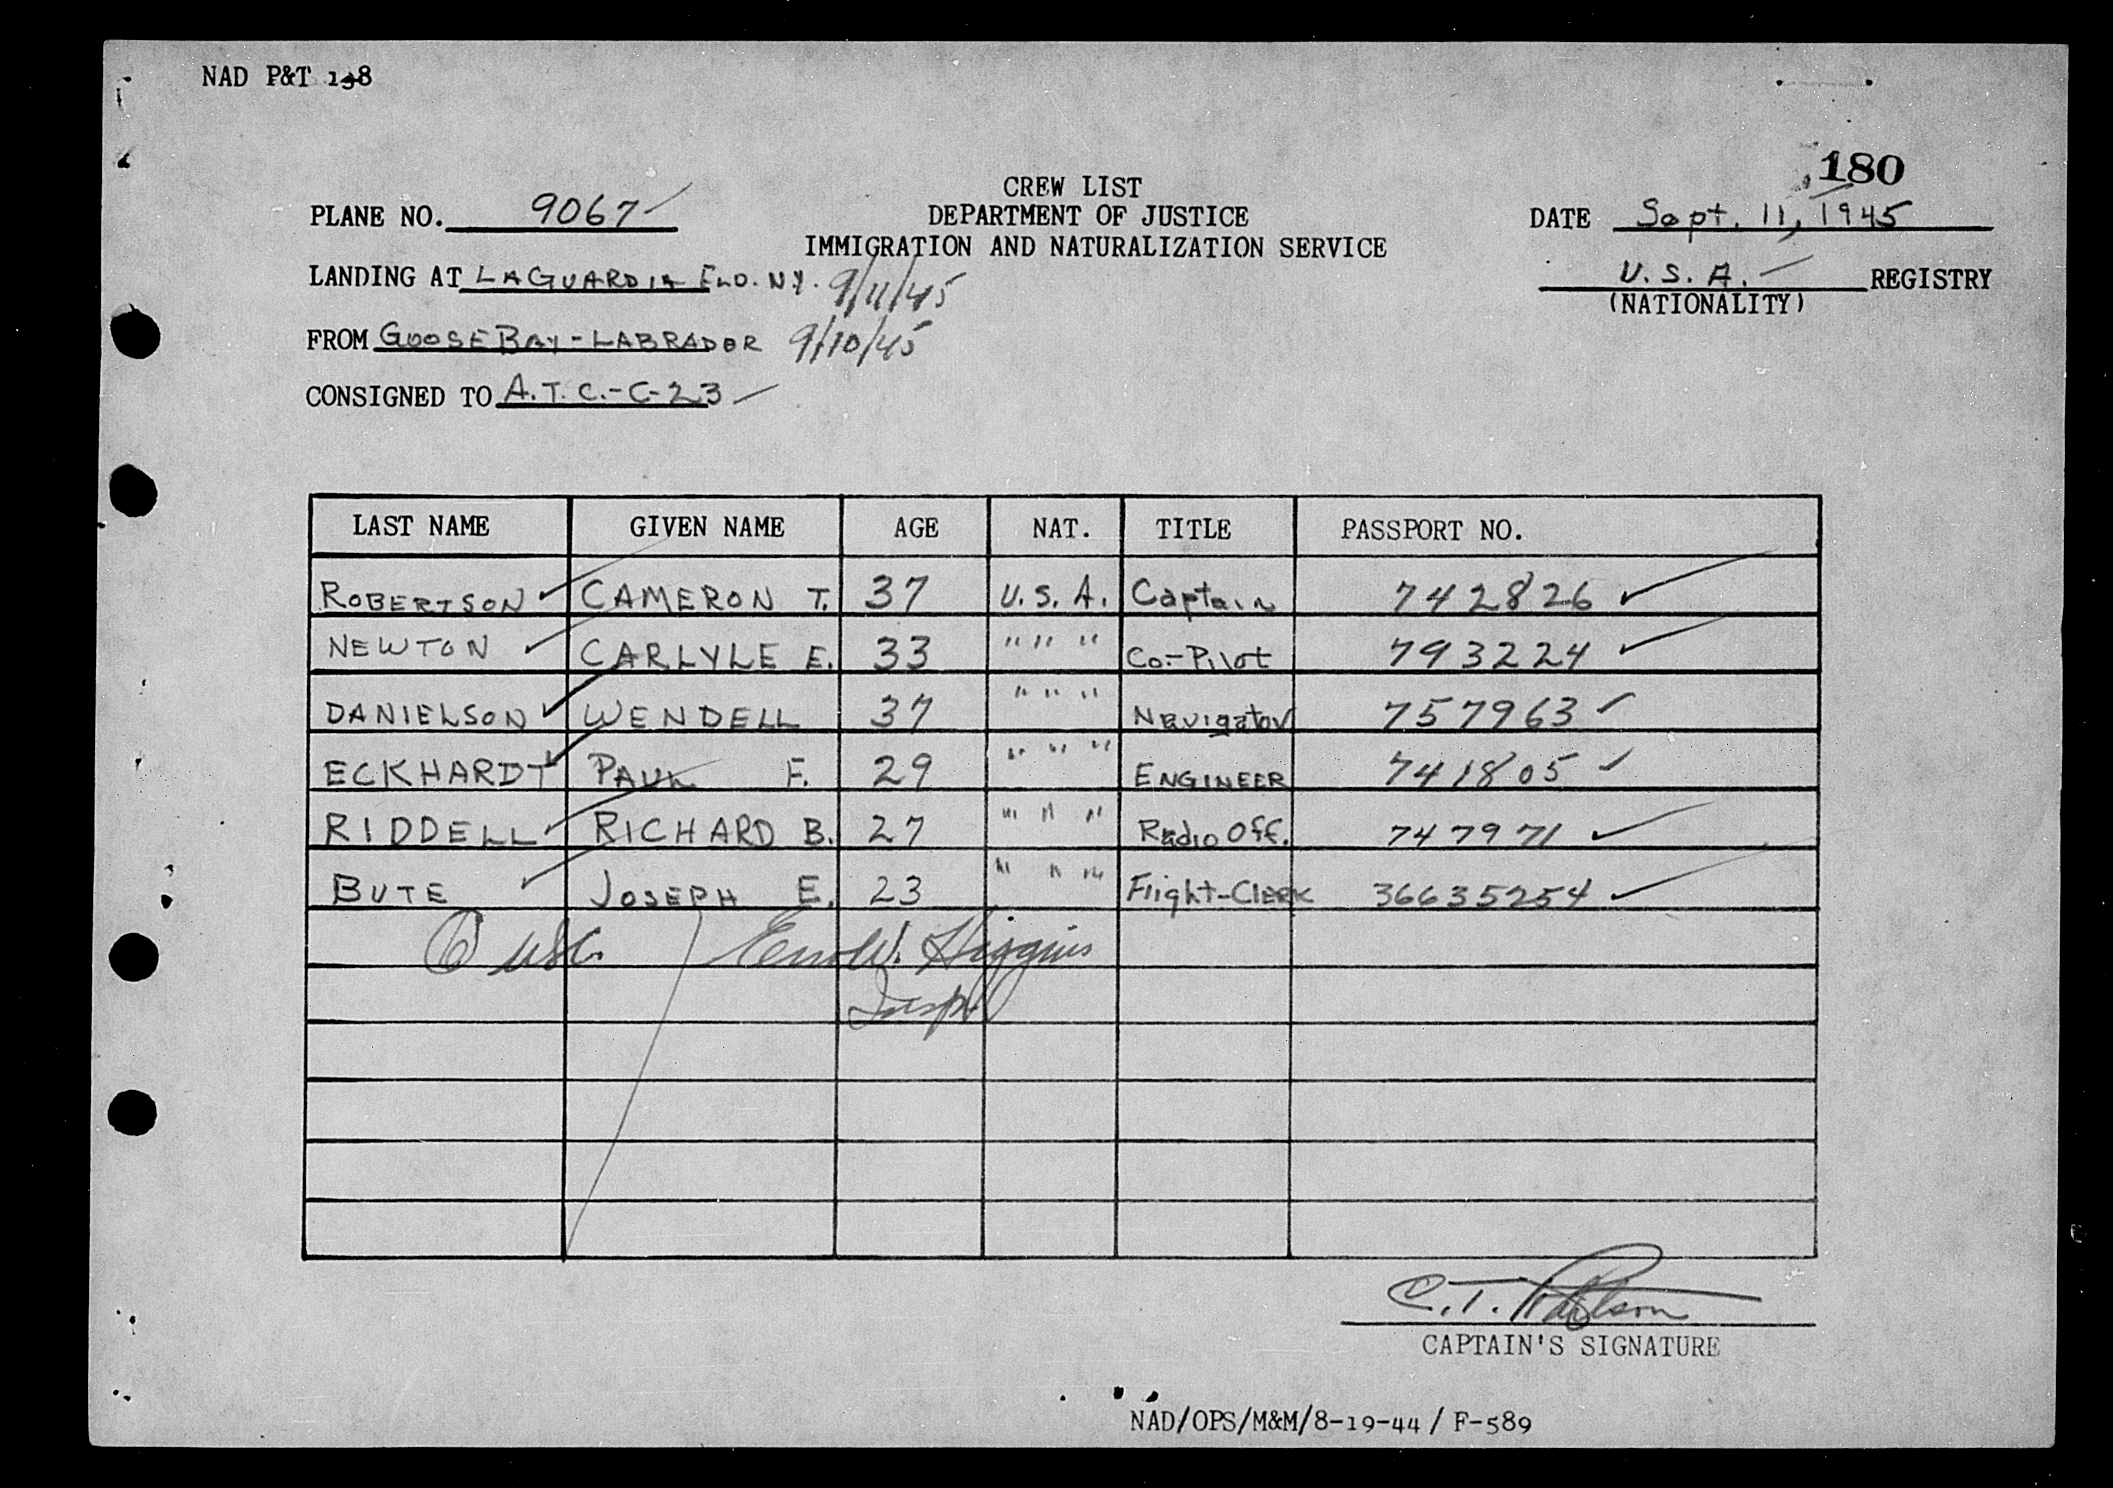 NAD P&T 138
180
CREW LIST
PLANE NO. 9067 DEPARTMENT OF JUSTICE DATE Sept. 11, 1945
IMMIGRATION AND NATURALIZATION SERVICE
LANDING AT LAGUARDIA FLD. N.Y. 9/11/45 U.S.A. REGISTRY
(NATIONALITY)
FROM GOOSE BAY - LABRADOR 9/10/45
CONSIGNED TO A.T.C.-C-23
LAST NAME GIVEN NAME AGE NAT. TITLE PASSPORT NO.
ROBERTSON CAMERON T. 37 U.S.A. Captain 742826
NEWTON CARLYLE E. 33 " " " Co-Pilot 793224
DANIELSON WENDELL 37 " " " Navigator 757963
ECKHARDT PAUL F. 29 " " " ENGINEER 741805
RIDDELL RICHARD B. 27 " " " Radio Off. 747971
BUTE JOSEPH E. 23 " " " Flight-Clerk 36635254
6 USC. W. Higgins
Insp.
C.T.
CAPTAIN'S SIGNATURE
NAD/OPS/M&M/8-19-44 / F-589